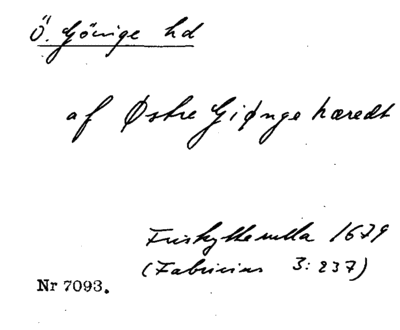 Ö. Göinge hd
af Østre Giønge hæredt
Friskytterulla 1679
(Fabricius 3:237)
Nr 7093.